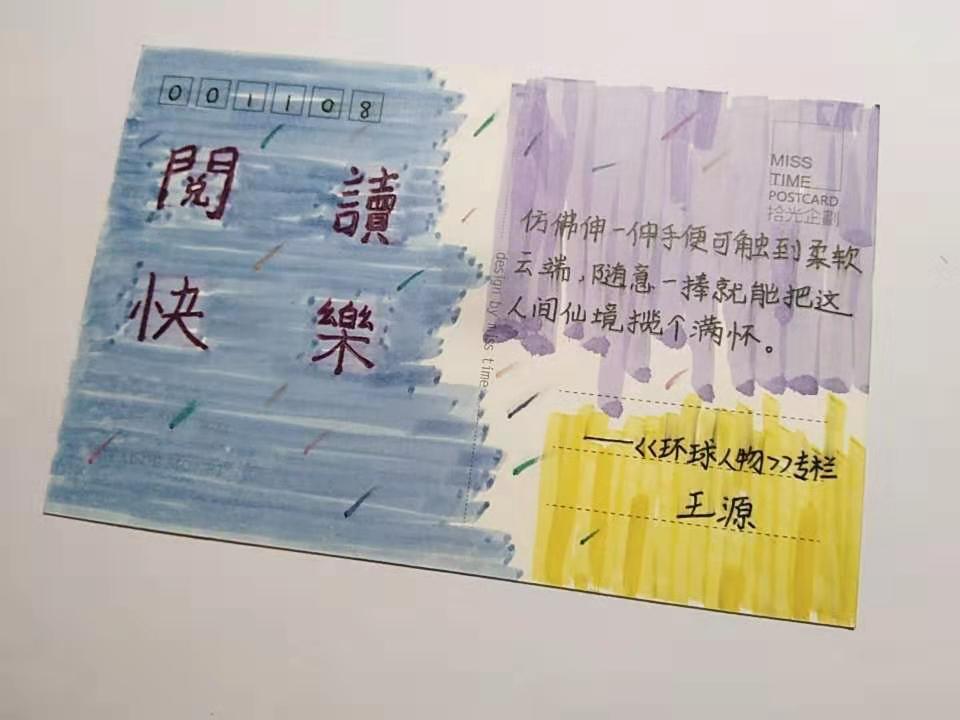 001108
閱讀
快樂
MISS
TIME
POSTCARD
拾光企劃
仿佛伸一伸手便可触到柔软
云端,随意一捧就能把这
人间仙境揽个满怀。
design by miss time
——<<环球人物>>专栏
王源